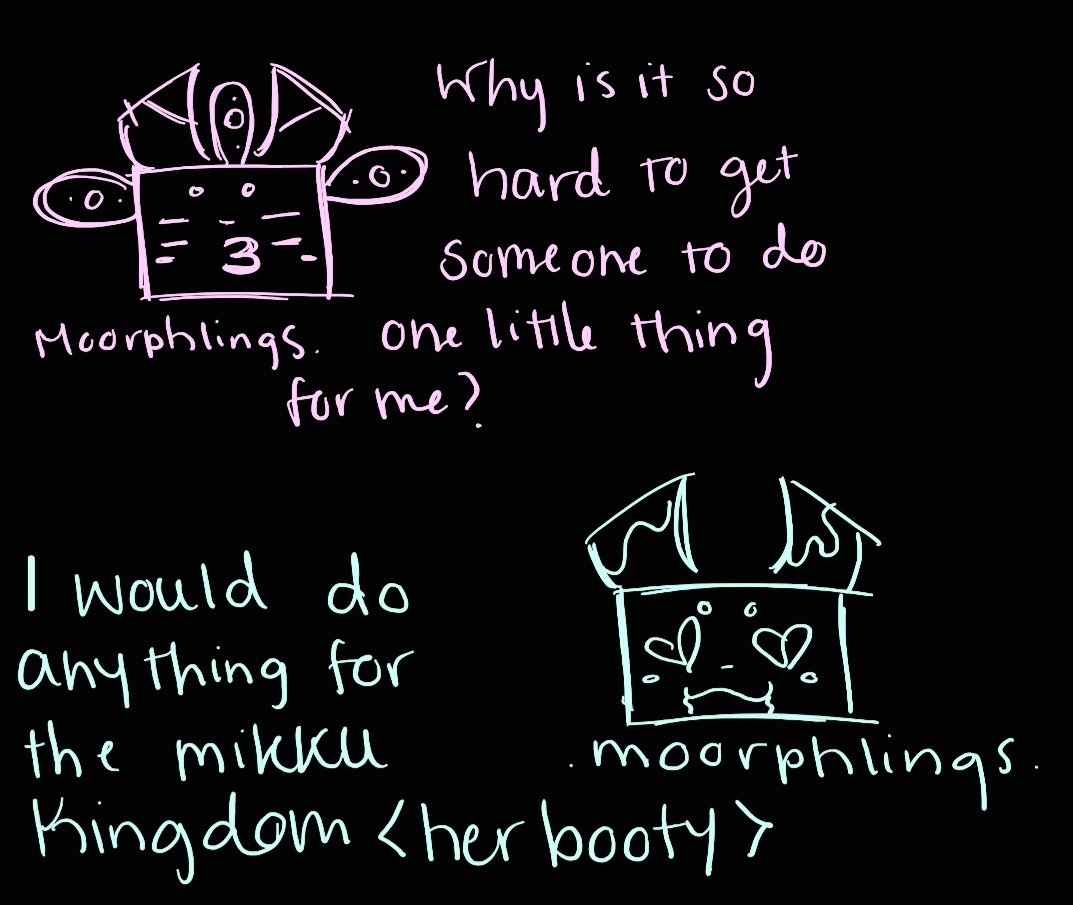 Why is it so
hard to get
someone to do
Moorphlings.
one little thing
for me?
I would do
anything for
the mikku
Kingdom <her booty>
. moorphlings.